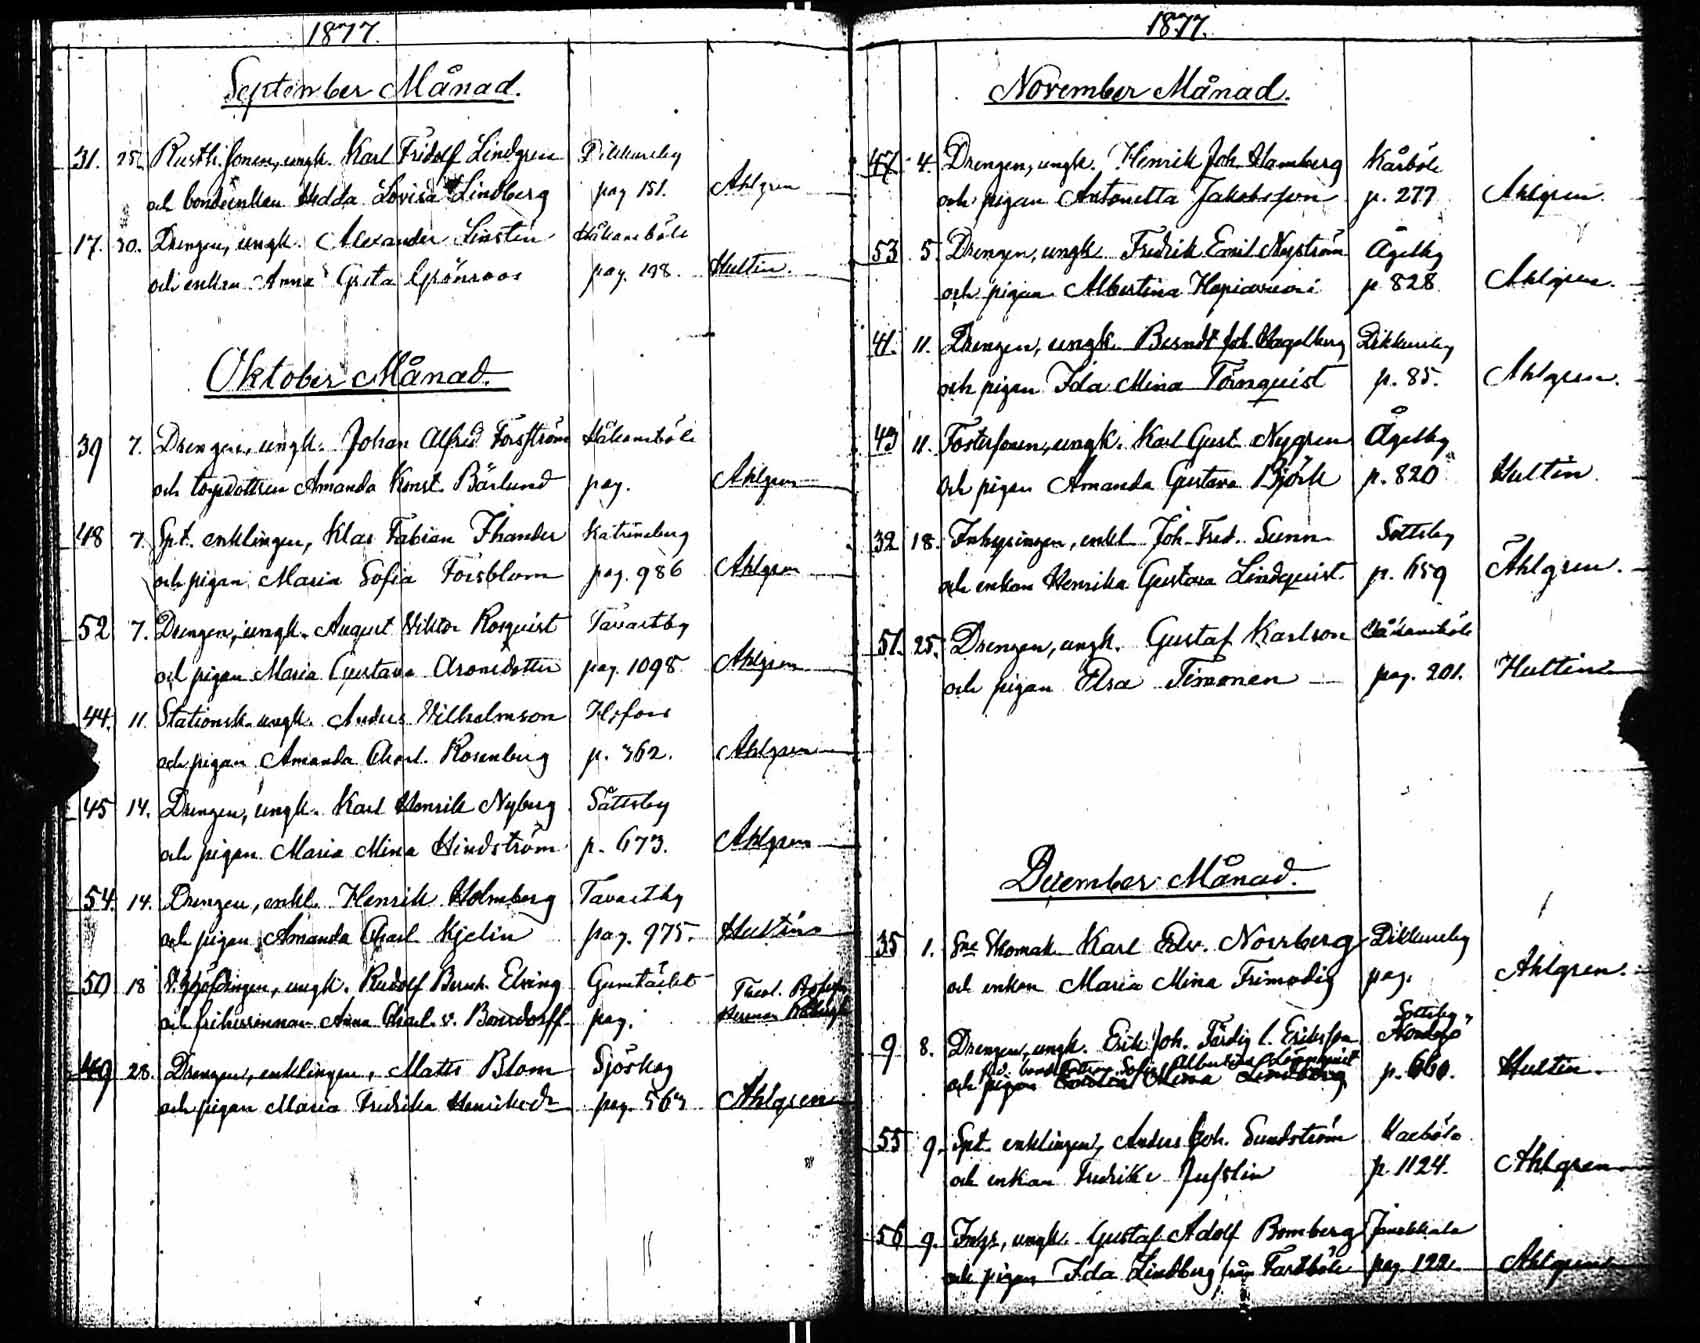 1877.
September Månad.
31. 25. Rusth. sonen, ungk. Karl Fridolf Lindgren Dickursby
och bondeenkan Hedda Lovisa Lindberg pag 151. Ahlgren
17. 30. Drengen, ungk. Alexander Linsten Håkansböle
och enkan Anna Gusta Grönroos pag. 198. Hultin.
Oktober Månad.
39 7. Drengen, ungk. Johan Alfred Forsström Håkansböle
och torpdottren Amanda Konst. Bärlund pag. Ahlgren
48 7. Spt. enklingen, Klas Fabian Thander Katrineberg
och pigan Maria Sofia Forsblom pag. 986 Ahlgren
52 7. Drengen, ungk. August Viktor Rosquist Tavastby
och pigan Maria Gustava Aronsdotter pag. 1098 Ahlgren
44. 11. Stationsk. ungk. Anders Vilhelmson H:fors
och pigan Amanda Charl. Rosenberg p. 362. Ahlgren
45 14. Drengen, ungk. Karl Henrik Nyberg Sottsby
och pigan Maria Mina Hindström p. 673. Ahlgren
54. 14. Drengen, enkl. Henrik Holmberg Tavastby
och pigan Amanda Charl. Kjelin pag. 975. Hultin
50 18 ungk. Rudolf Elving
och friherrinnan Anna Charl. v. Bonsdorff pag. Herman
49 28. Drengen, enklingen, Matts Blom Sjöskog
och pigan Maria Fredrika Henriksdr pag. 563 Ahlgren
1877.
November Månad.
47 4. Drengen, ungk. Henrik Joh. Hamberg Kårböle
och pigan Antonetta Jakobsson p. 277 Ahlgren.
53 5. Drengen, ungk. Fredrik Emil Nyström Ågelby
och pigan Albertina p. 828 Ahlgren.
41. 11. Drengen, ungk. Berndt Joh. Hagelberg Dickursby
och pigan Ida Mina Törnquist p. 85. Ahlgren.
43 11. Fostersonen, ungk. Karl Gust. Nygren Ågelby
och pigan Amanda Gustava Björk p. 820 Hultin
32 18. Inhysingen, enkl. Joh. Fred. Sunn Sottsby
och enkan Henrika Gustava Lindquist p. 659 Ahlgren.
51. 25. Drengen, ungk. Gustaf Karlson Håkansböle
och pigan Elsa Timonen pag. 201. Hultin
December Månad.
35 1. Skomak. Karl Edv. Norrberg Dickursby
och enkan Maria Mina Frimodig pag. Ahlgren.
Sottsby
9 8. Drengen, ungk. Erik Joh. Färdig l. Eriksson
Sofia Albertina
och pigan Mina Lindberg p. 660. Hultin.
55 9. Spt. enklingen, Anders Joh. Sundström
och enkan Fredrika Juslin p. 1124. Ahlgren
56 9. Inhs, ungk. Gustaf Adolf Bomberg Janakkala
och pigan Ida Lindberg från Fastböle pag. 122. Ahlgren